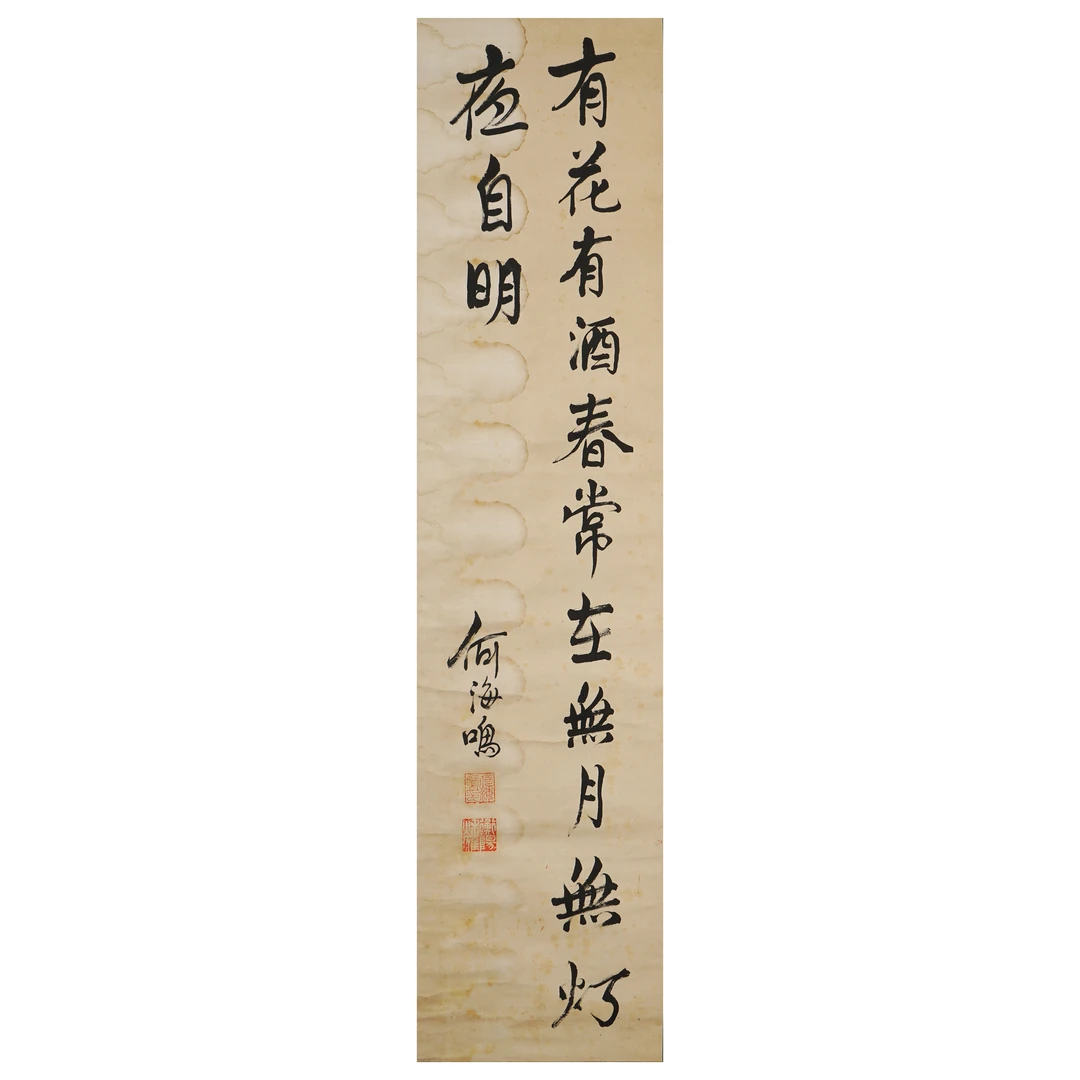 有花有酒春常在無月無灯
夜自明
何海鳴